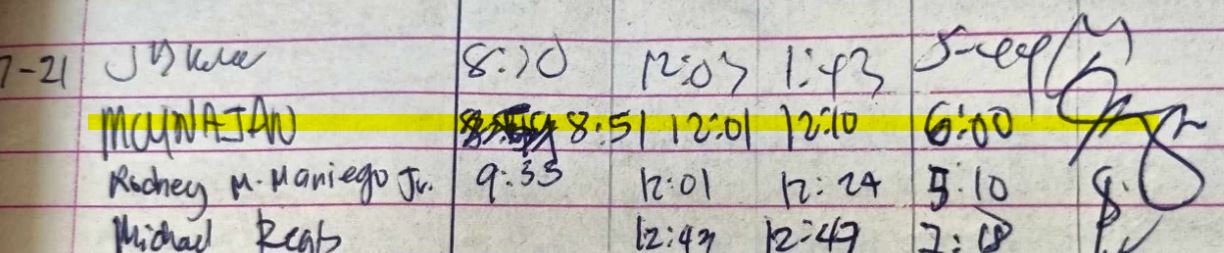 7-21 8:20 12:03 1:43
MCUNAJAN 8:51 12:01 12:10 6:00
Rodney M. Maniego Jr. 9:33 12:01 12:24 5:10
Michael 12:43 12:47 7:18